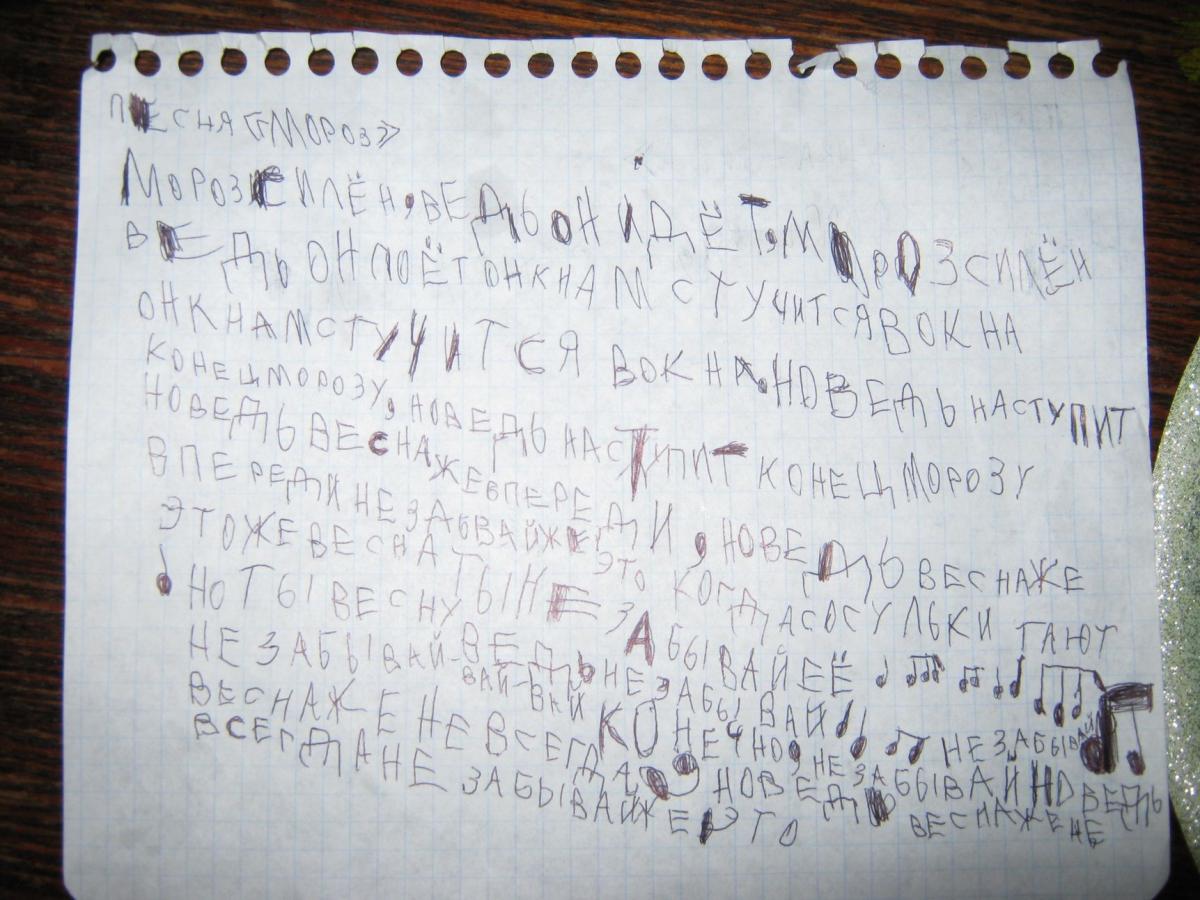 ПЕСНЯ «МОРОЗ»
МОРОЗ СИЛЁН, ВЕДЬ ОН ИДЁТ, МОРОЗ СИЛЁН
ВЕДЬ ОН ПОЁТ ОН К НАМ СТУЧИТСЯ В ОКНА
ОН К НАМ СТУЧИТСЯ В ОКНА, НО ВЕДЬ НАСТУПИТ
КОНЕЦ МОРОЗУ, НО ВЕДЬ НАСТУПИТ КОНЕЦ МОРОЗУ
НО ВЕДЬ ВЕСНА ЖЕ ВПЕРЕДИ, НО ВЕДЬ ВЕСНА ЖЕ
ВПЕРЕДИ НЕ ЗАБВАЙ ЖЕ ЭТО КОГДА СОСУЛЬКИ ТАЮТ
ЭТО ЖЕ ВЕСНА ТЫ НЕ ЗАБЫВАЙ ЕЁ
НО ТЫ ВЕСНУ НЕ ЗАБЫВАЙ
НЕ ЗАБЫВАЙ-ВАЙ-ВАЙ КОНЕЧНО, НЕ ЗАБЫВАЙ НО ВЕДЬ
ВЕСНА ЖЕ НЕ ВСЕГДА НО ВЕДЬ ВЕСНА ЖЕ НЕ
ВСЕГДА НЕ ЗАБЫВАЙ ЖЕ ЭТО